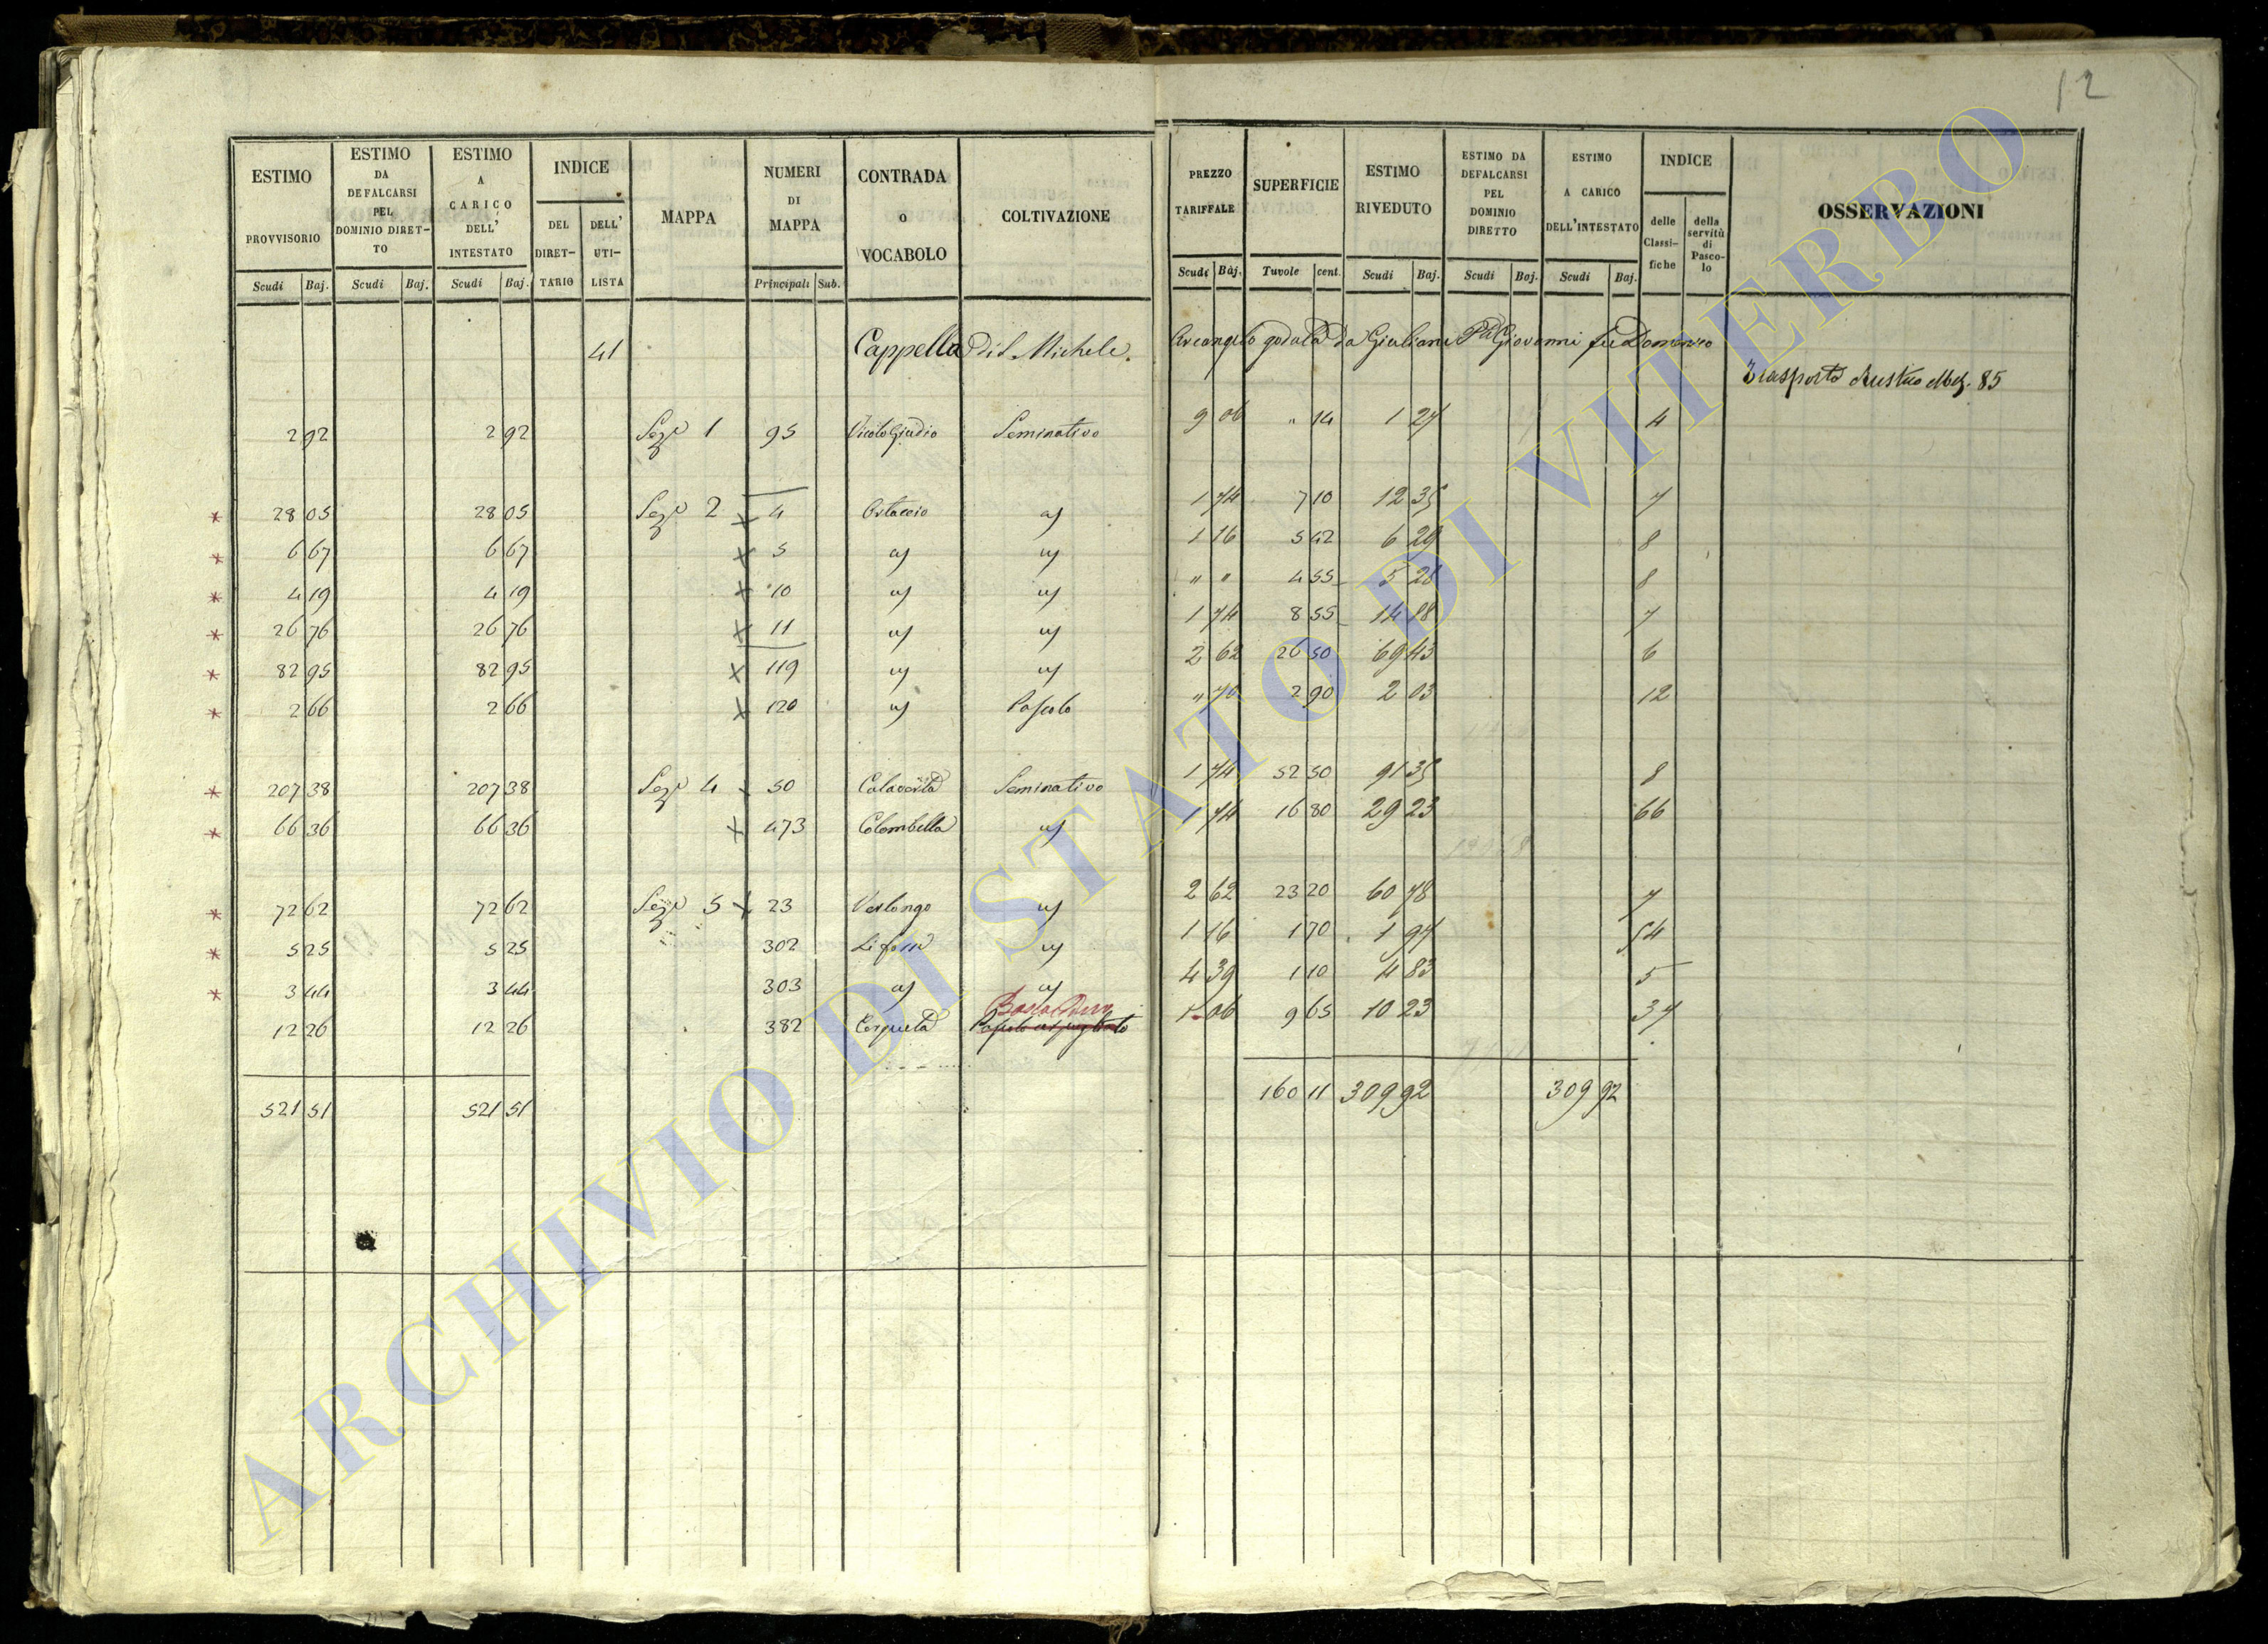 12
ESTIMO PROVVISORIO
Scudi Baj.
ESTIMO DA DEFALCARSI PEL DOMINIO DIRETTO
Scudi Baj.
ESTIMO A CARICO DELL' INTESTATO
Scudi Baj.
INDICE
DEL DIRETTARIO
DELL' UTILISTA
MAPPA
NUMERI DI MAPPA
Principali Sub.
CONTRADA o VOCABOLO
COLTIVAZIONE
PREZZO TARIFFALE
Scudi Baj.
SUPERFICIE
Tavole cent.
ESTIMO RIVEDUTO
Scudi Baj.
ESTIMO DA DEFALCARSI PEL DOMINIO DIRETTO
Scudi Baj.
ESTIMO A CARICO DELL'INTESTATO
Scudi Baj.
INDICE
delle Classifiche
della servitù di Pascolo
OSSERVAZIONI
41 Cappella di S. Michele Arcangelo goduta da Giuliani Giovanni fu Domenico
Trasporto 85
2 92 2 92 Seze 1 95 Vicolo Giudio Seminativo 9 06 " 14 1 27 4
* 28 05 28 05 Seze 2 x 4 Ortaccio a/ 1 74 7 10 12 35 7
* 6 67 6 67 x 5 a/ a/ 1 16 5 42 6 29 8
* 4 19 4 19 x 10 a/ a/ " " 4 55 5 28 8
* 26 76 26 76 x 11 a/ a/ 1 74 8 55 14 88 7
* 82 95 82 95 x 119 a/ a/ 2 62 26 50 69 43 6
* 2 66 2 66 x 120 a/ Pascolo " 70 2 90 2 03 12
* 207 38 207 38 Seze 4 x 50 Seminativo 1 74 52 50 91 35 8
* 66 36 66 36 x 473 Colombella a/ 1 74 16 80 29 23 66
* 72 62 72 62 Seze 5 x 23 Verlongo a/ 2 62 23 20 60 78 7
* 5 25 5 25 302 a/ 1 16 1 70 1 97 54
* 3 44 3 44 303 a/ a/ 4 39 1 10 4 83 5
12 26 12 26 382 Cerqueta 1 06 9 65 10 23 37
521 51 521 51 160 11 309 92 309 92
ARCHIVIO DI STATO DI VITERBO